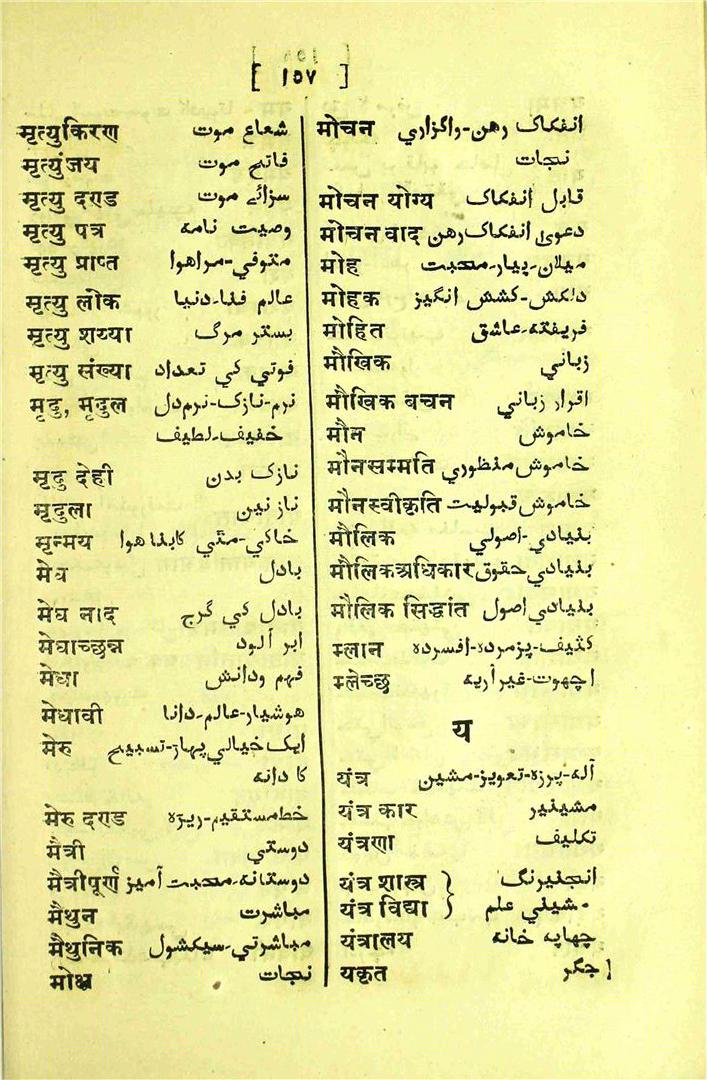 [ ۱۵۷ ]
मृत्युकिरण شعاع موت
मृत्युंजय فاتح موت
मृत्यु दण्ड سزائے موت
मृत्यु पत्र وصیت نامہ
मृत्यु प्राप्त متوفي-مراهوا
मृत्यु लोक عالم فنا-دنیا
मृत्यु शय्या بستر مرگ
मृत्यु संख्या فوتي کي تعداد
मृदु, मृदुल نرم-نازک-نرم‌دل
خفیف-لطیف
मृदु देही نازک بدن
मृदुला نازنین
मृन्मय خاکي-مٹي کابنا هوا
मेघ بادل
मेघ नाद بادل کي گرج
मेघाच्छन्न ابر آلود
मेधा فہم ودانش
मेधावी هوشیار-عالم-دانا
मेरु ایک خیالي پہاڑ-تسبیح
کا دانه
मेरु दण्ड خط مستقیم-ریڑه
मैत्री دوستي
मैत्रीपूर्ण دوستانه-محبت آمیز
मैथुन مباشرت
मैथुनिक مباشرتي-سیکشول
मोक्ष نجات
मोचन انفکاک رهن-واگزاري
نجات
मोचन योग्य قابل انفکاک
मोचन वाद دعوی انفکاک رهن
मोह میلان-پیار-محبت
मोहक دلکش-کشش انگیز
मोहित فریفته-عاشق
मौखिक زباني
मौखिक वचन اقرار زباني
मौन خاموش
मौनसम्मति خاموش منظوري
मौनस्वीकृति خاموش قبولیت
मौलिक بنیادي-اصولي
मौलिकअधिकार بنیادي حقوق
मौलिक सिद्धांत بنیادي اصول
म्लान کثیف-پزمرده-افسرده
म्लेच्छ اچھوت-غیر آریه
य
यंत्र آله-پرزه-تعویز-مشین
यंत्र कार مشینیر
यंत्रणा تکلیف
यंत्र शास्त्र } انجنیرنگ
यंत्र विद्या } مشیني علم
यंत्रालय چھاپه خانه
यकृत جگر